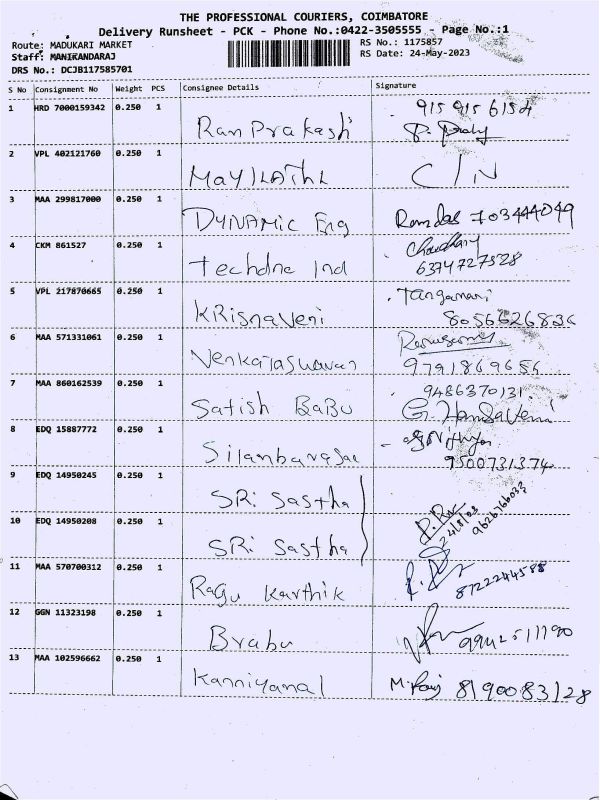 THE PROFESSIONAL COURIERS, COIMBATORE
Delivery Runsheet - PCK - Phone No.:0422-3505555 - Page No.:1
Route: MADUKARI MARKET RS No.: 1175857
Staff: MANIKANDARAJ RS Date: 24-May-2023
DRS No.: DCJB117585701
S No Consignment No Weight PCS Consignee Details Signature
1 HRD 7000159342 0.250 1 Ram Prakash 915 915 6154
2 VPL 402121760 0.250 1 MAYILATHL C/N
3 MAA 299817000 0.250 1 DYNAMIC Eng Ramdas 703444049
4 CKM 861527 0.250 1 Techdne Ind Choudhary
6374727528
5 VPL 217870665 0.250 1 KRisnaveni Tangamani
8056626836
6 MAA 571331061 0.250 1 Venkataswaran
9791869656
7 MAA 860162539 0.250 1 Satish BaBu 9486370131
G. Hamsaveni
8 EDQ 15887772 0.250 1 Silanbarasan
9500731374
9 EDQ 14950245 0.250 1 SRi Sastha
10 EDQ 14950208 0.250 1 SRi Sastha 9626766033
11 MAA 570700312 0.250 1 Ragu Karthik 8722244588
12 GGN 11323198 0.250 1 Brabu 9942511190
13 MAA 102596662 0.250 1 Kanniyanal M. Raj 8190083128